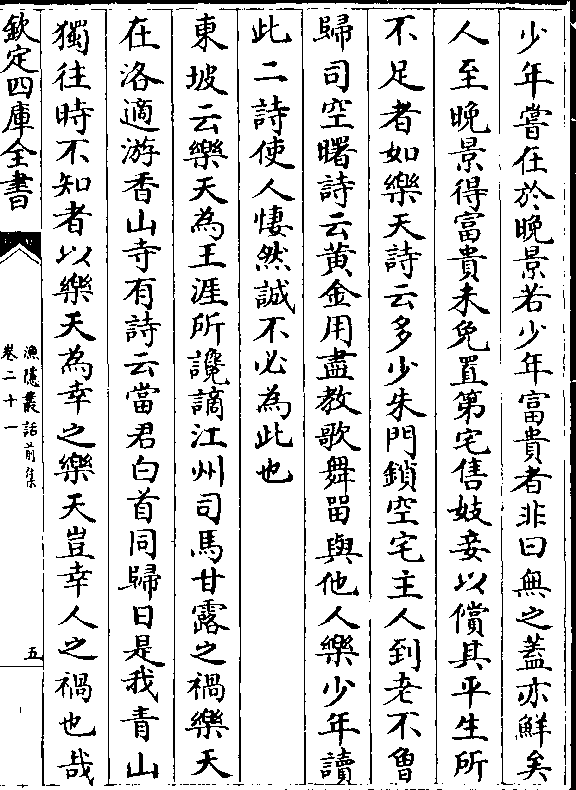 少年嘗在於晚景若少年富貴者非曰無之蓋亦鮮矣
人至晚景得富貴未免置第宅售妓妾以償其平生所
不足者如樂天詩云多少朱門鎖空宅主人到老不曾
歸司空曙詩云黄金用盡教歌舞留與他人樂少年讀
此二詩使人悽然誠不必為此也
東坡云樂天為王涯所讒謫江州司馬甘露之禍樂天
在洛適游香山寺有詩云當君白首同歸日是我青山
獨往時不知者以樂天為幸之樂天豈幸人之禍也哉
欽定四庫全書
漁隱叢話前集
卷二十一
五